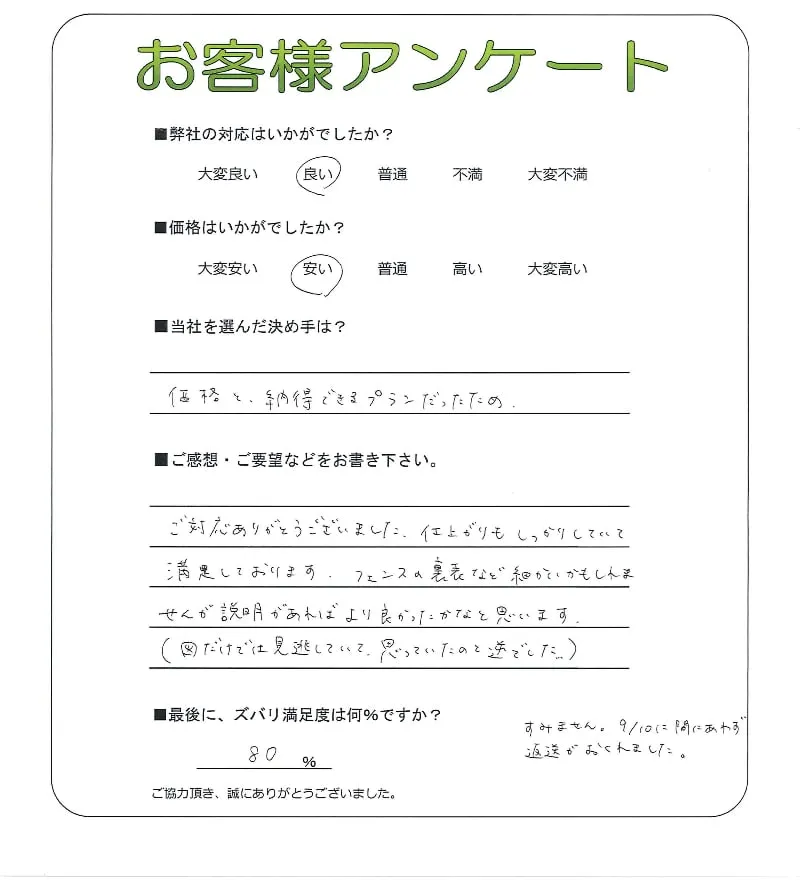 お客様アンケート
■弊社の対応はいかがでしたか？
大変良い 良い 普通 不満 大変不満
■価格はいかがでしたか？
大変安い 安い 普通 高い 大変高い
■当社を選んだ決め手は？
価格と、納得できるプランだったため.
■ご感想・ご要望などをお書き下さい。
ご対応ありがとうございました. 仕上がりもしっかりしていて
満足しております. フェンスの裏表など細かいかもしれま
せんが説明があればより良かったかなと思います.
(図だけでは見逃していて、思っていたのと逆でした…)
■最後に、ズバリ満足度は何％ですか？
80 %
すみません。9/10に間にあわず
返送がおくれました。
ご協力頂き、誠にありがとうございました。